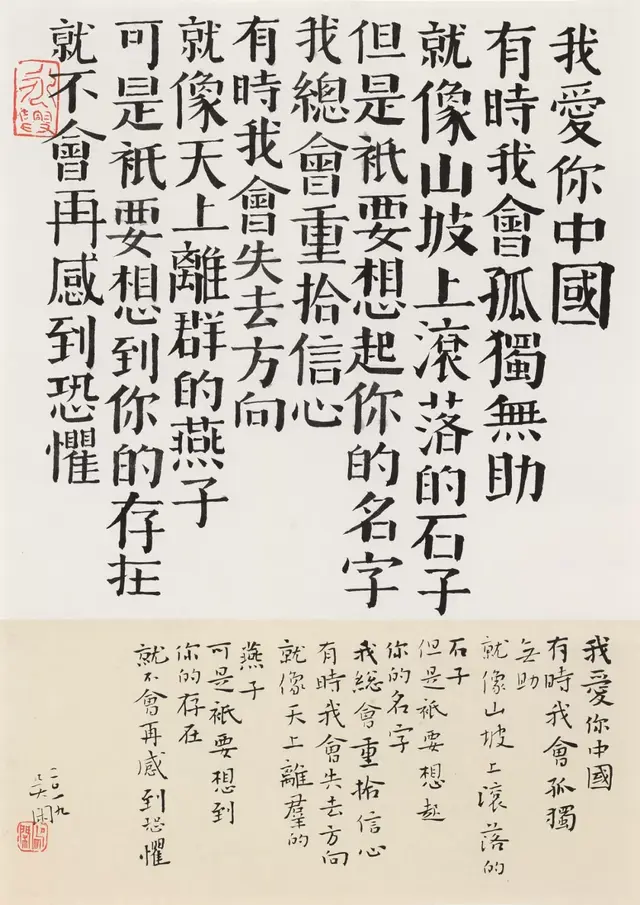 我愛你中國
有時我會孤獨無助
就像山坡上滾落的石子
但是衹要想起你的名字
我總會重拾信心
有時我會失去方向
就像天上離群的燕子
可是衹要想到你的存在
就不會再感到恐懼
我愛你中國
有時我會孤獨
無助
就像山坡上滾落的
石子
但是衹要想起
你的名字
我總會重拾信心
有時我會失去方向
就像天上離羣的
燕子
可是衹要想到
你的存在
就不會再感到恐懼
二〇一九